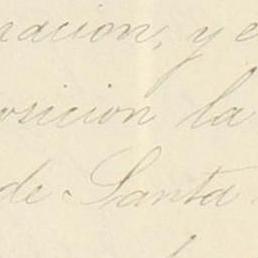 racion, y e
posicion la
de Santa